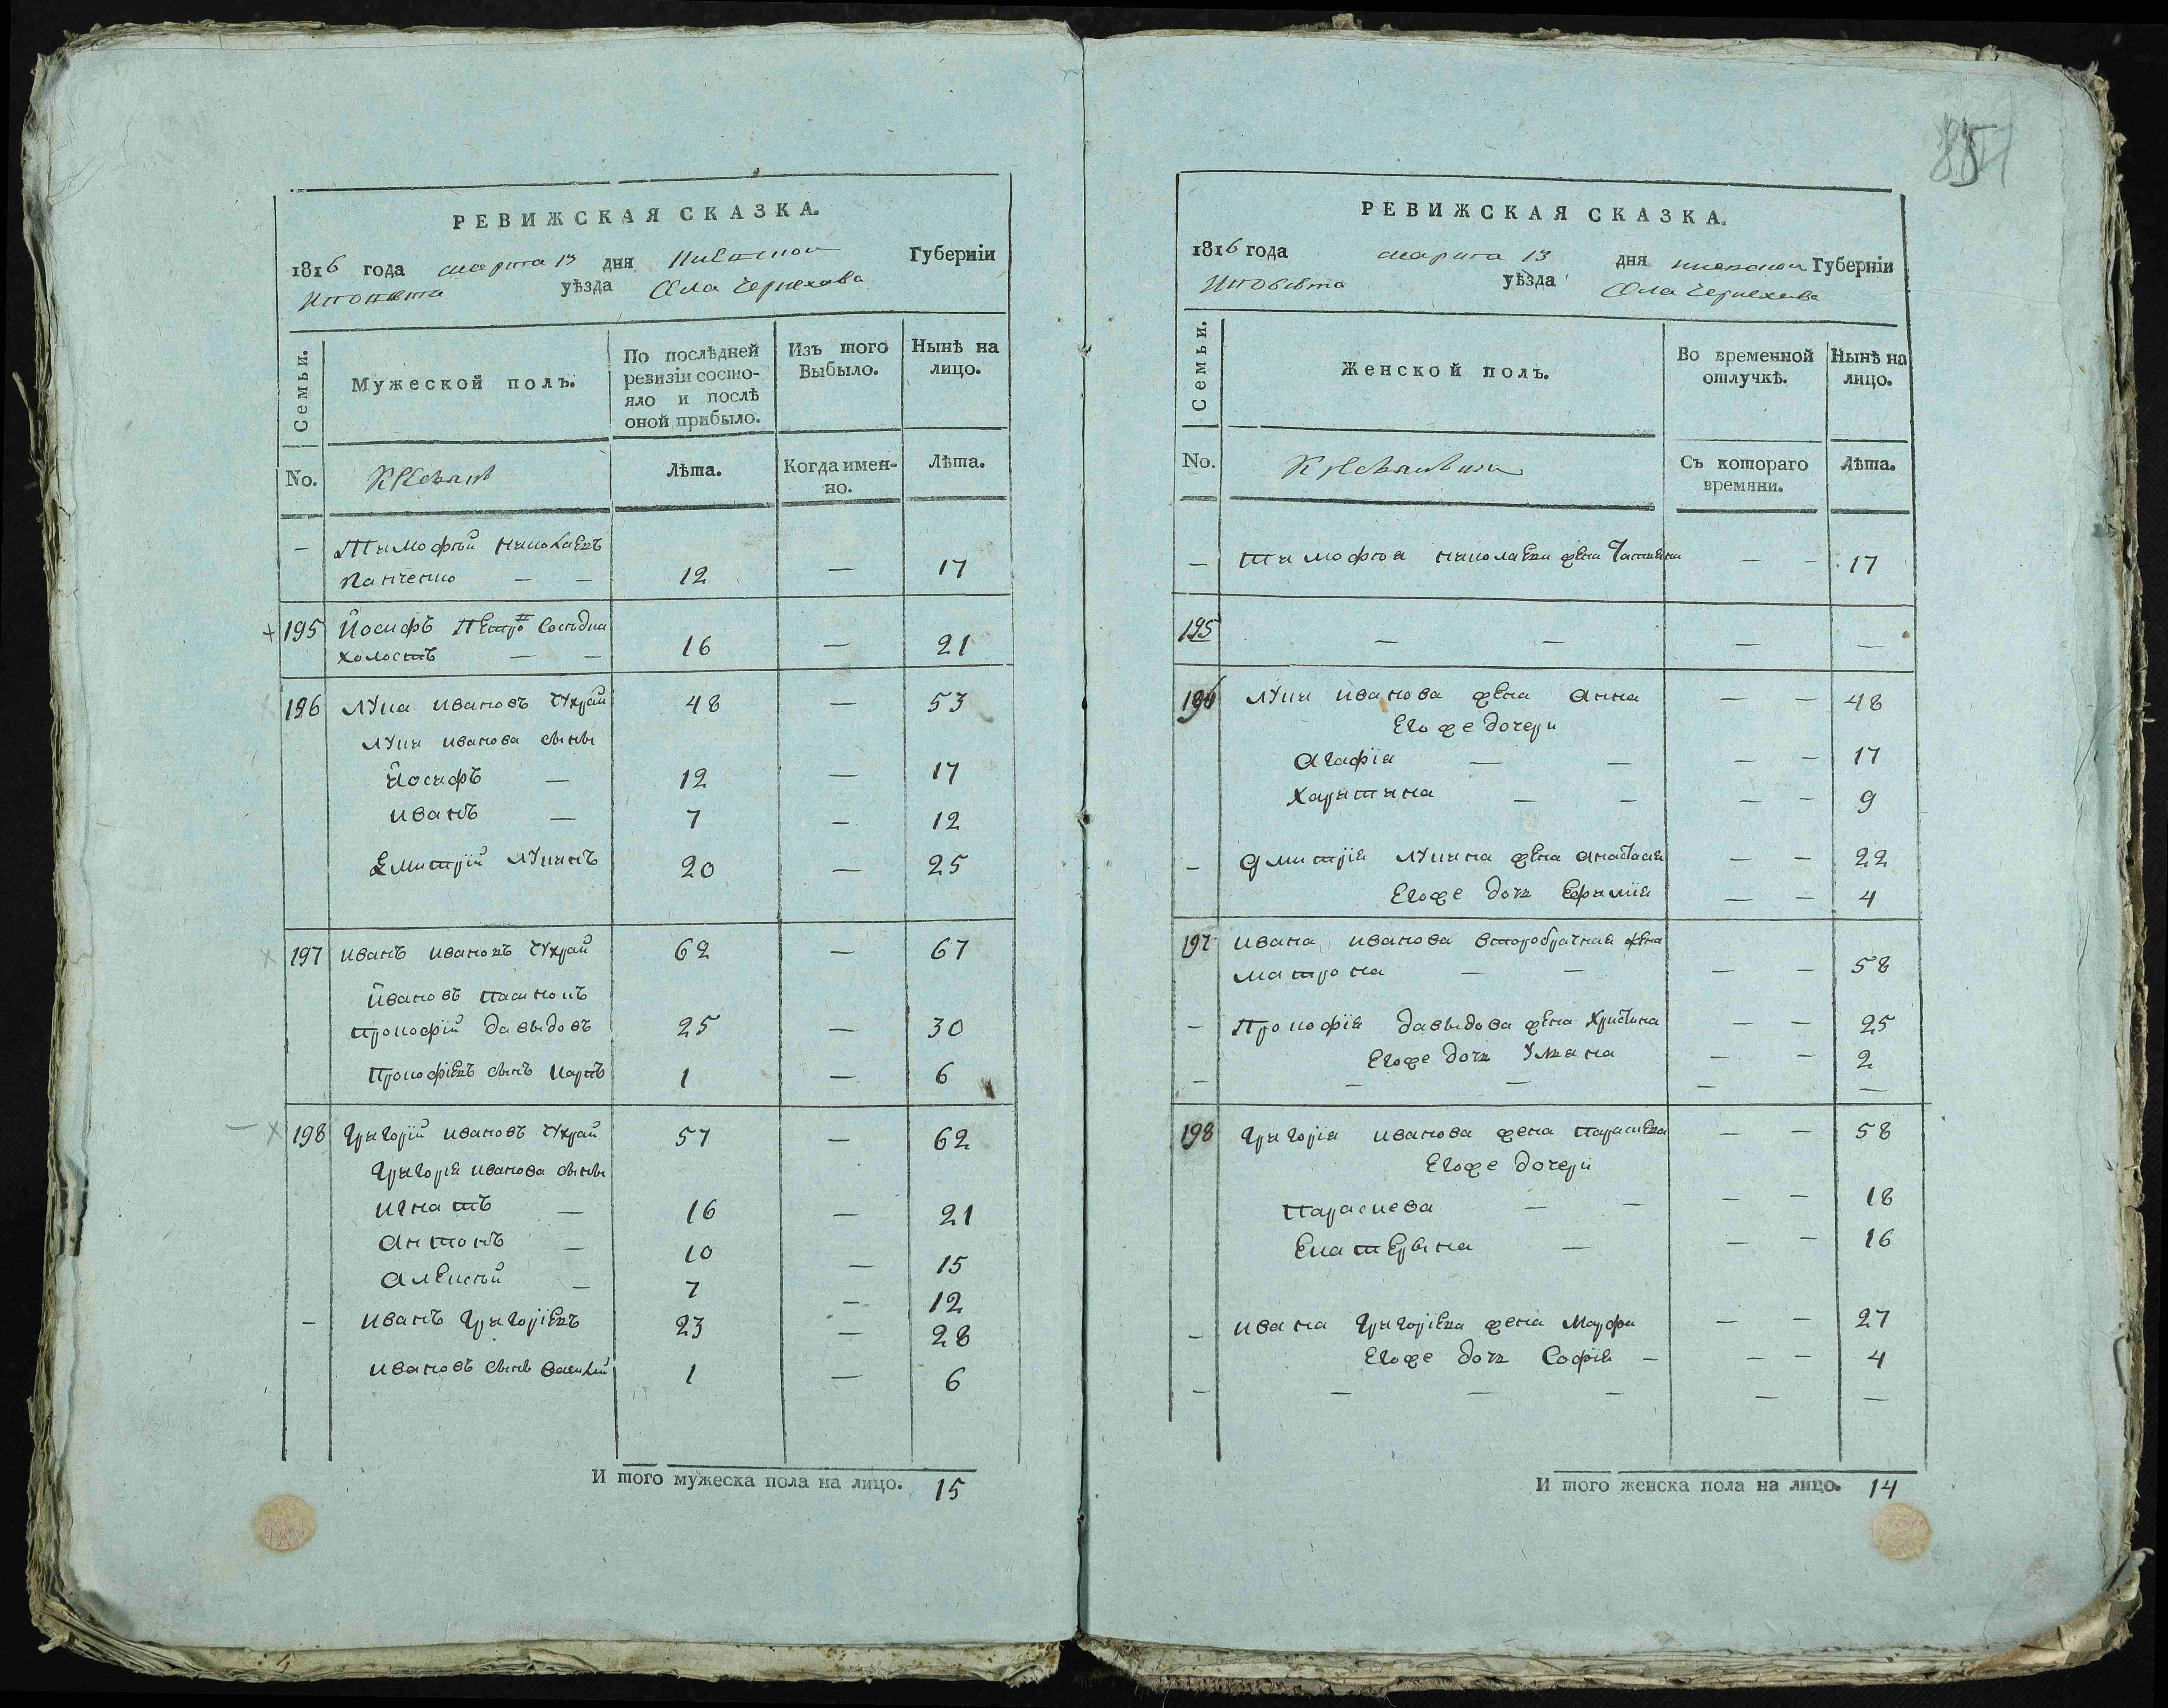 РЕВИЖСКАЯ СКАЗКА.
1816 года марта 13 дня Киевской Губернїи
уѣзда Села Черняхова
Семьи.
Мужеской полъ.
По послѣдней ревизїи состояло и послѣ оной прибыло.
Изъ того Выбыло.
Нынѣ на лицо.
No.
Лѣта.
Когда именно.
Лѣта.
— Тимофѣй Николаевъ
Панченко — — 12 — 17
195 Йосифъ Петро
холостъ — — 16 — 21
196 Лука Ивановъ Чухрай 48 — 53
Луки Иванова сыны
Йосифъ — 12 — 17
Иванъ — 7 — 12
Дмитрїй Лукинъ 20 — 25
197 Иванъ Ивановъ Чухрай 62 — 67
Ивановъ пасинокъ
Прокофїй Давыдовъ 25 — 30
Прокофїевъ сынъ Карпъ 1 — 6
198 Григорїй Ивановъ Чухрай 57 — 62
Григорїя Иванова сыны
Игнатъ — 16 — 21
Антонъ — 10 — 15
Алексѣй — 7 — 12
— Иванъ Григорїевъ 23 — 28
Ивановъ сынъ Василїй 1 — 6
И того мужеска пола на лицо. 15
РЕВИЖСКАЯ СКАЗКА.
1816 года марта 13 дня Киевской Губернїи
уѣзда Села Черняхова
Семьи.
Женской полъ.
Во временной отлучкѣ.
Нынѣ на лицо.
No.
Съ котораго времяни.
Лѣта.
— Тимофѣя Николаева жена Татьяна — — 17
195 — — — —
196 Луки Иванова жена Анна — — 48
Егоже дочери
Агафїя — — — — 17
Харитина — — — — 9
— Дмитрїя Лукина жена Анастасїя — — 22
Егоже дочь Ефимїя — — 4
197 Ивана Иванова второбрачная жена
Матрона — — — — 58
— Прокофїя Давыдова жена Христина — — 25
Егоже дочь Ульяна — — 2
— — — — —
198 Григорїя Иванова жена Параскева — — 58
Егоже дочери
Параскева — — — — 18
Екатерына — — — 16
— Ивана Григорїева жена Марфа — — 27
Егоже дочь Софїя — — — 4
— — — — — —
И того женска пола на лицо. 14